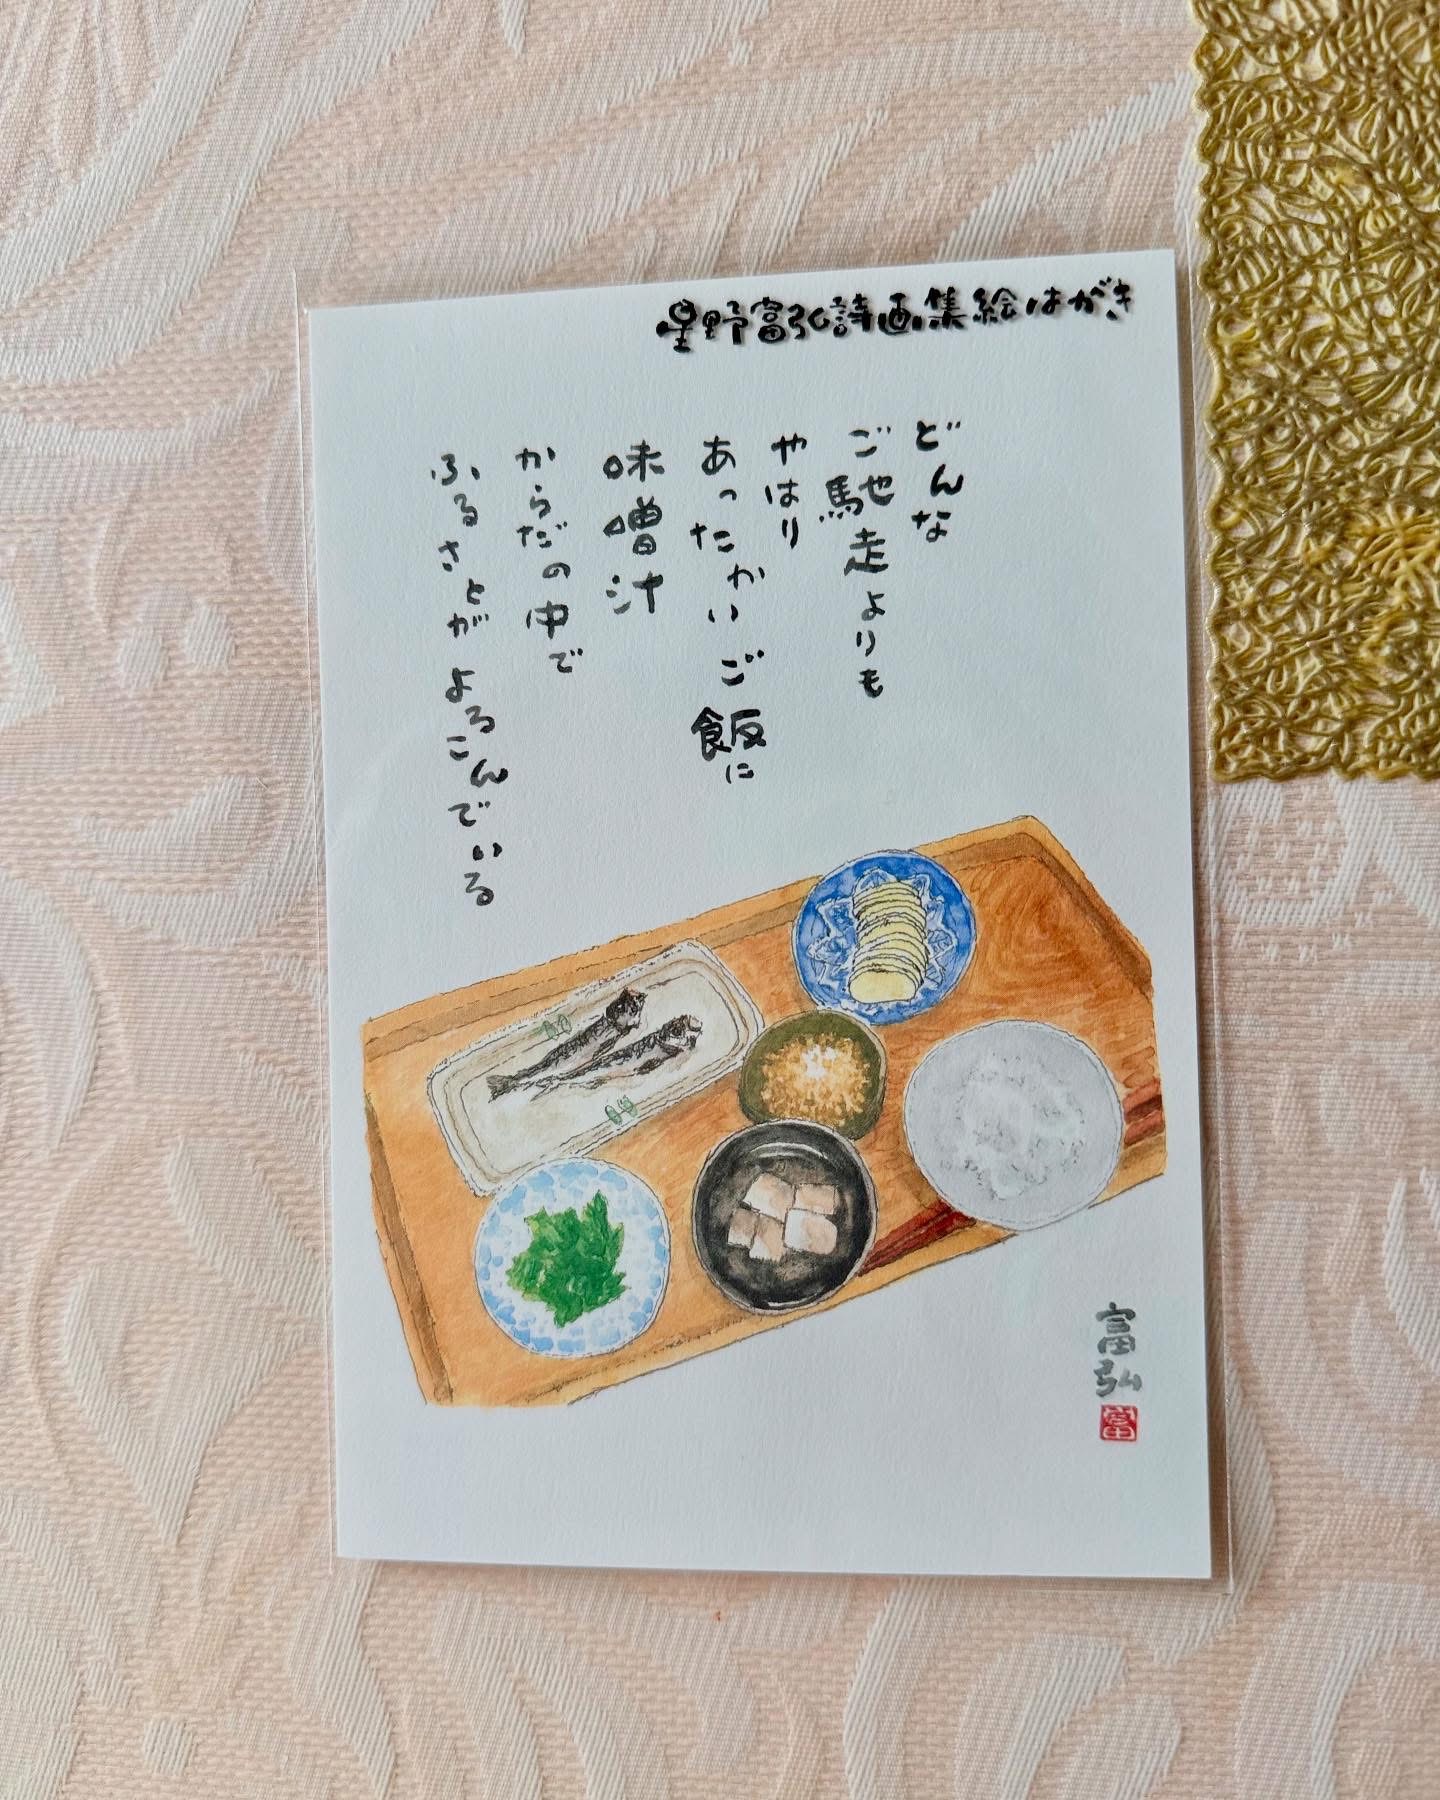 星野富弘詩画集絵はがき
どんな
ご馳走よりも
やはり
あったかいご飯に
味噌汁
からだの中で
ふるさとがよろこんでいる
富弘
富